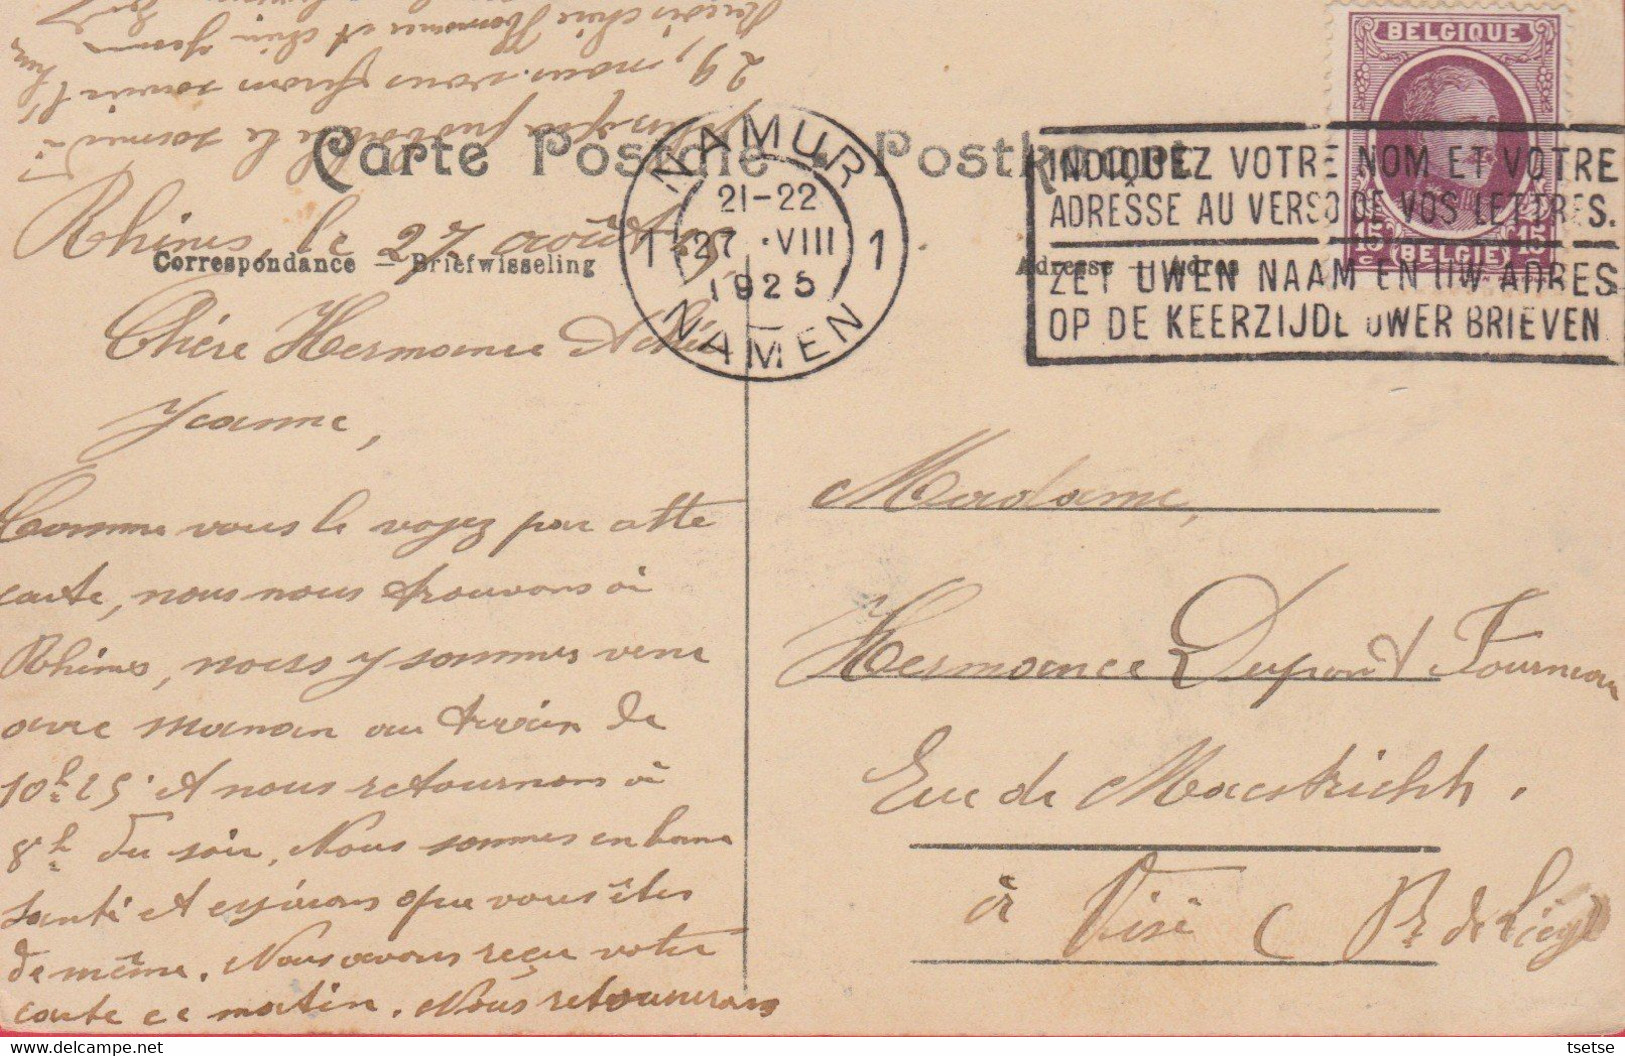 BELGIQUE
15 c 15 c
(BELGIE)
Carte Postale • Postkaart
NAMUR
21-22
1 27 VIII 1
1925
NAMEN
INDIQUEZ VOTRE NOM ET VOTRE
ADRESSE AU VERSO DE VOS LETTRES.
ZET UWEN NAAM EN UW ADRES
OP DE KEERZIJDE UWER BRIEVEN
Correspondance — Briefwisseling
Adresse — Adres
Rhisnes, le 27 août
Chère Hermance
Jeanne,
Comme vous le voyez par cette
carte, nous nous trouvons à
Rhisnes, nous y sommes venu
avec maman au train de
10h25 et nous retournons à
8h du soir. Nous sommes en bonne
santé et espérons que vous êtes
de même. Nous avons reçu votre
carte ce matin. Nous retournerons
le samedi
29, nous vous ferons savoir l'
chère Hermance et
Madame,
Hermance Dupont Fourneau
Rue de Maestricht.
à Visé ( Pr de Liége
tsetse